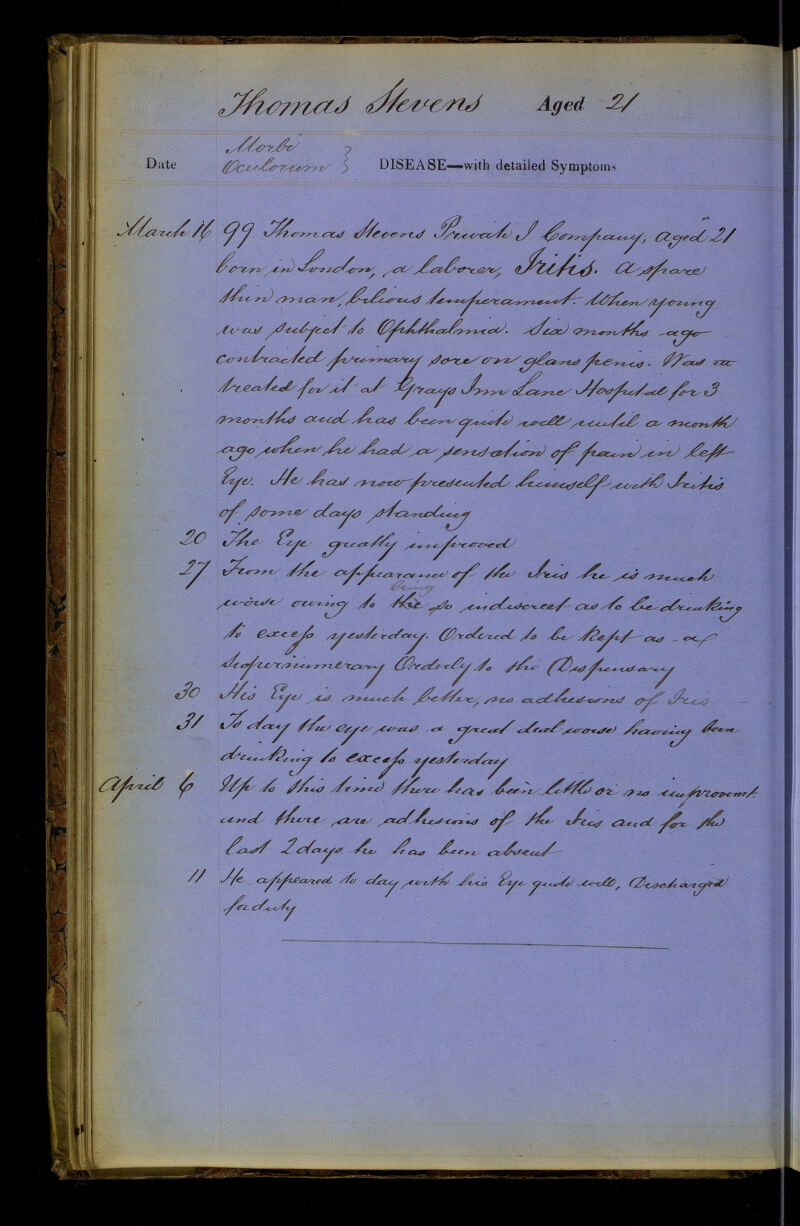 Thomas Stevens Aged 21
Morbi
Date Oculorum } DISEASE—with detailed Symptoms
March 16 99 Thomas Stevens Private I Company, aged 21
born in London, a laborer, Iritis. A spare
thin man, bilious temperament. When young
was subject to Ophthalmia. Six months ago
contracted primary sore on glans penis. Was
treated for it at Grays Inn Lane Hospital for 3
months and has been quite well until a month
ago when he had a sensation of pain in left
Eye. He has now presented himself with Iritis
of some days standing
20 The Eye greatly improved
27 From the appearance of the Iris he is much
being
worse owing to the so indiscreet as to be drinking
to excess yesterday. Ordered to be kept as a
Supernumerary Orderly to the Dispensary
30 His Eye is much better, no adhesions of Iris
31 To day the eye was a great deal worse having been
drinking to excess yesterday
April 6 Up to this time there has been little or no improvemt.
and there are adhesions of the Iris and for the
last 2 days he has been absent
11 He appeared to day with his Eye quite well, Discharged
for duty